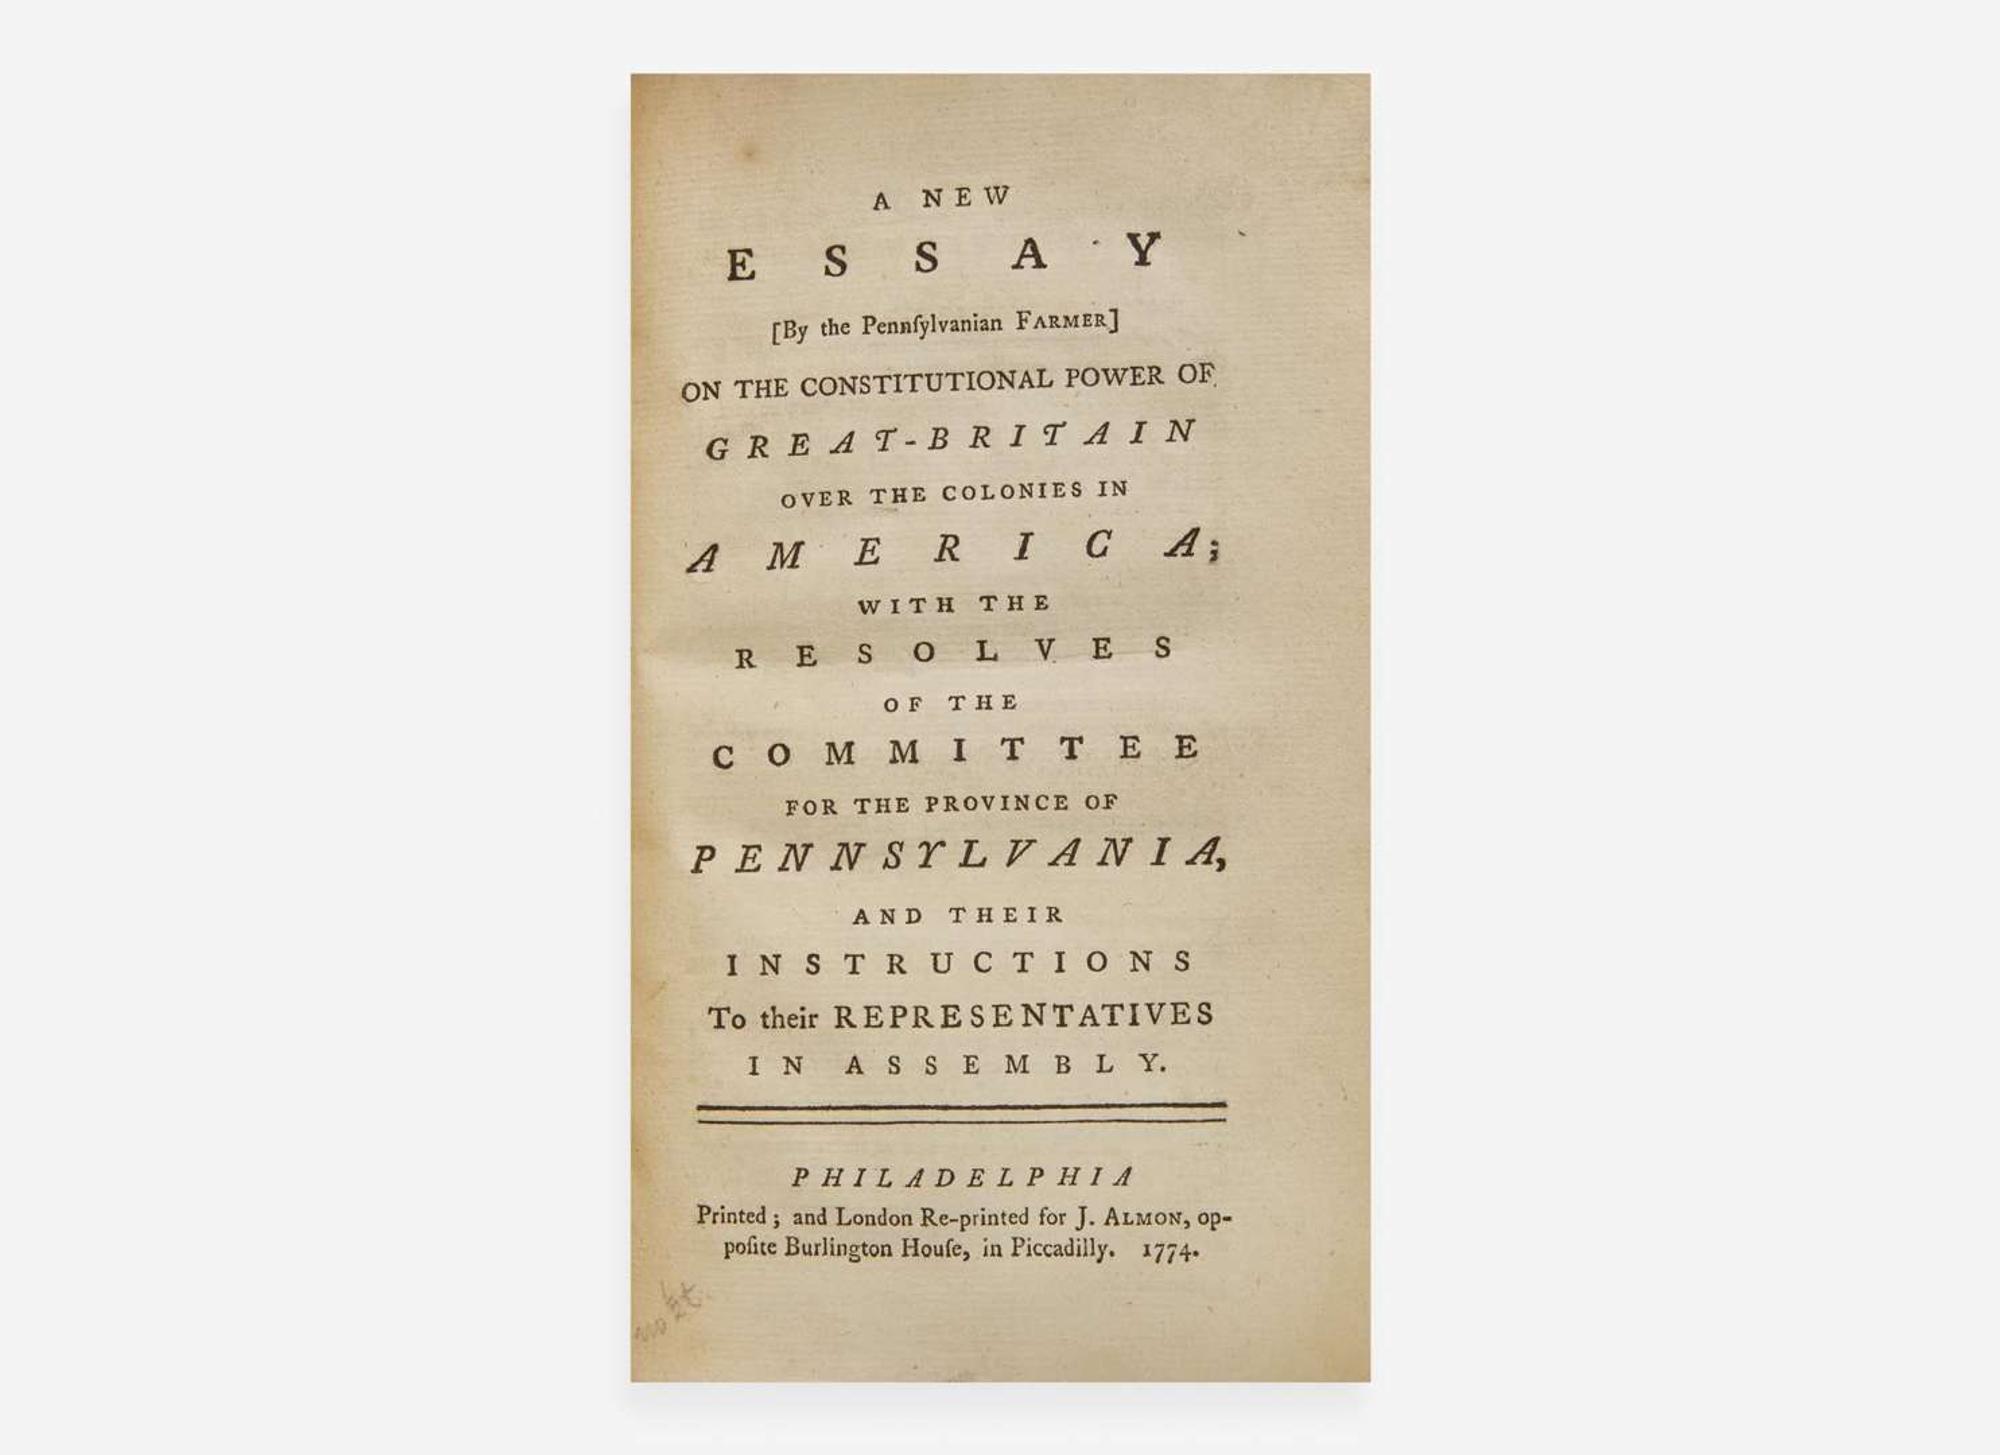 A NEW
ESSAY
[By the Pennſylvanian FARMER]
ON THE CONSTITUTIONAL POWER OF
GREAT-BRITAIN
OVER THE COLONIES IN
AMERICA;
WITH THE
RESOLVES
OF THE
COMMITTEE
FOR THE PROVINCE OF
PENNSYLVANIA,
AND THEIR
INSTRUCTIONS
To their REPRESENTATIVES
IN ASSEMBLY.
PHILADELPHIA
Printed; and London Re-printed for J. ALMON, op-
poſite Burlington Houſe, in Piccadilly. 1774.